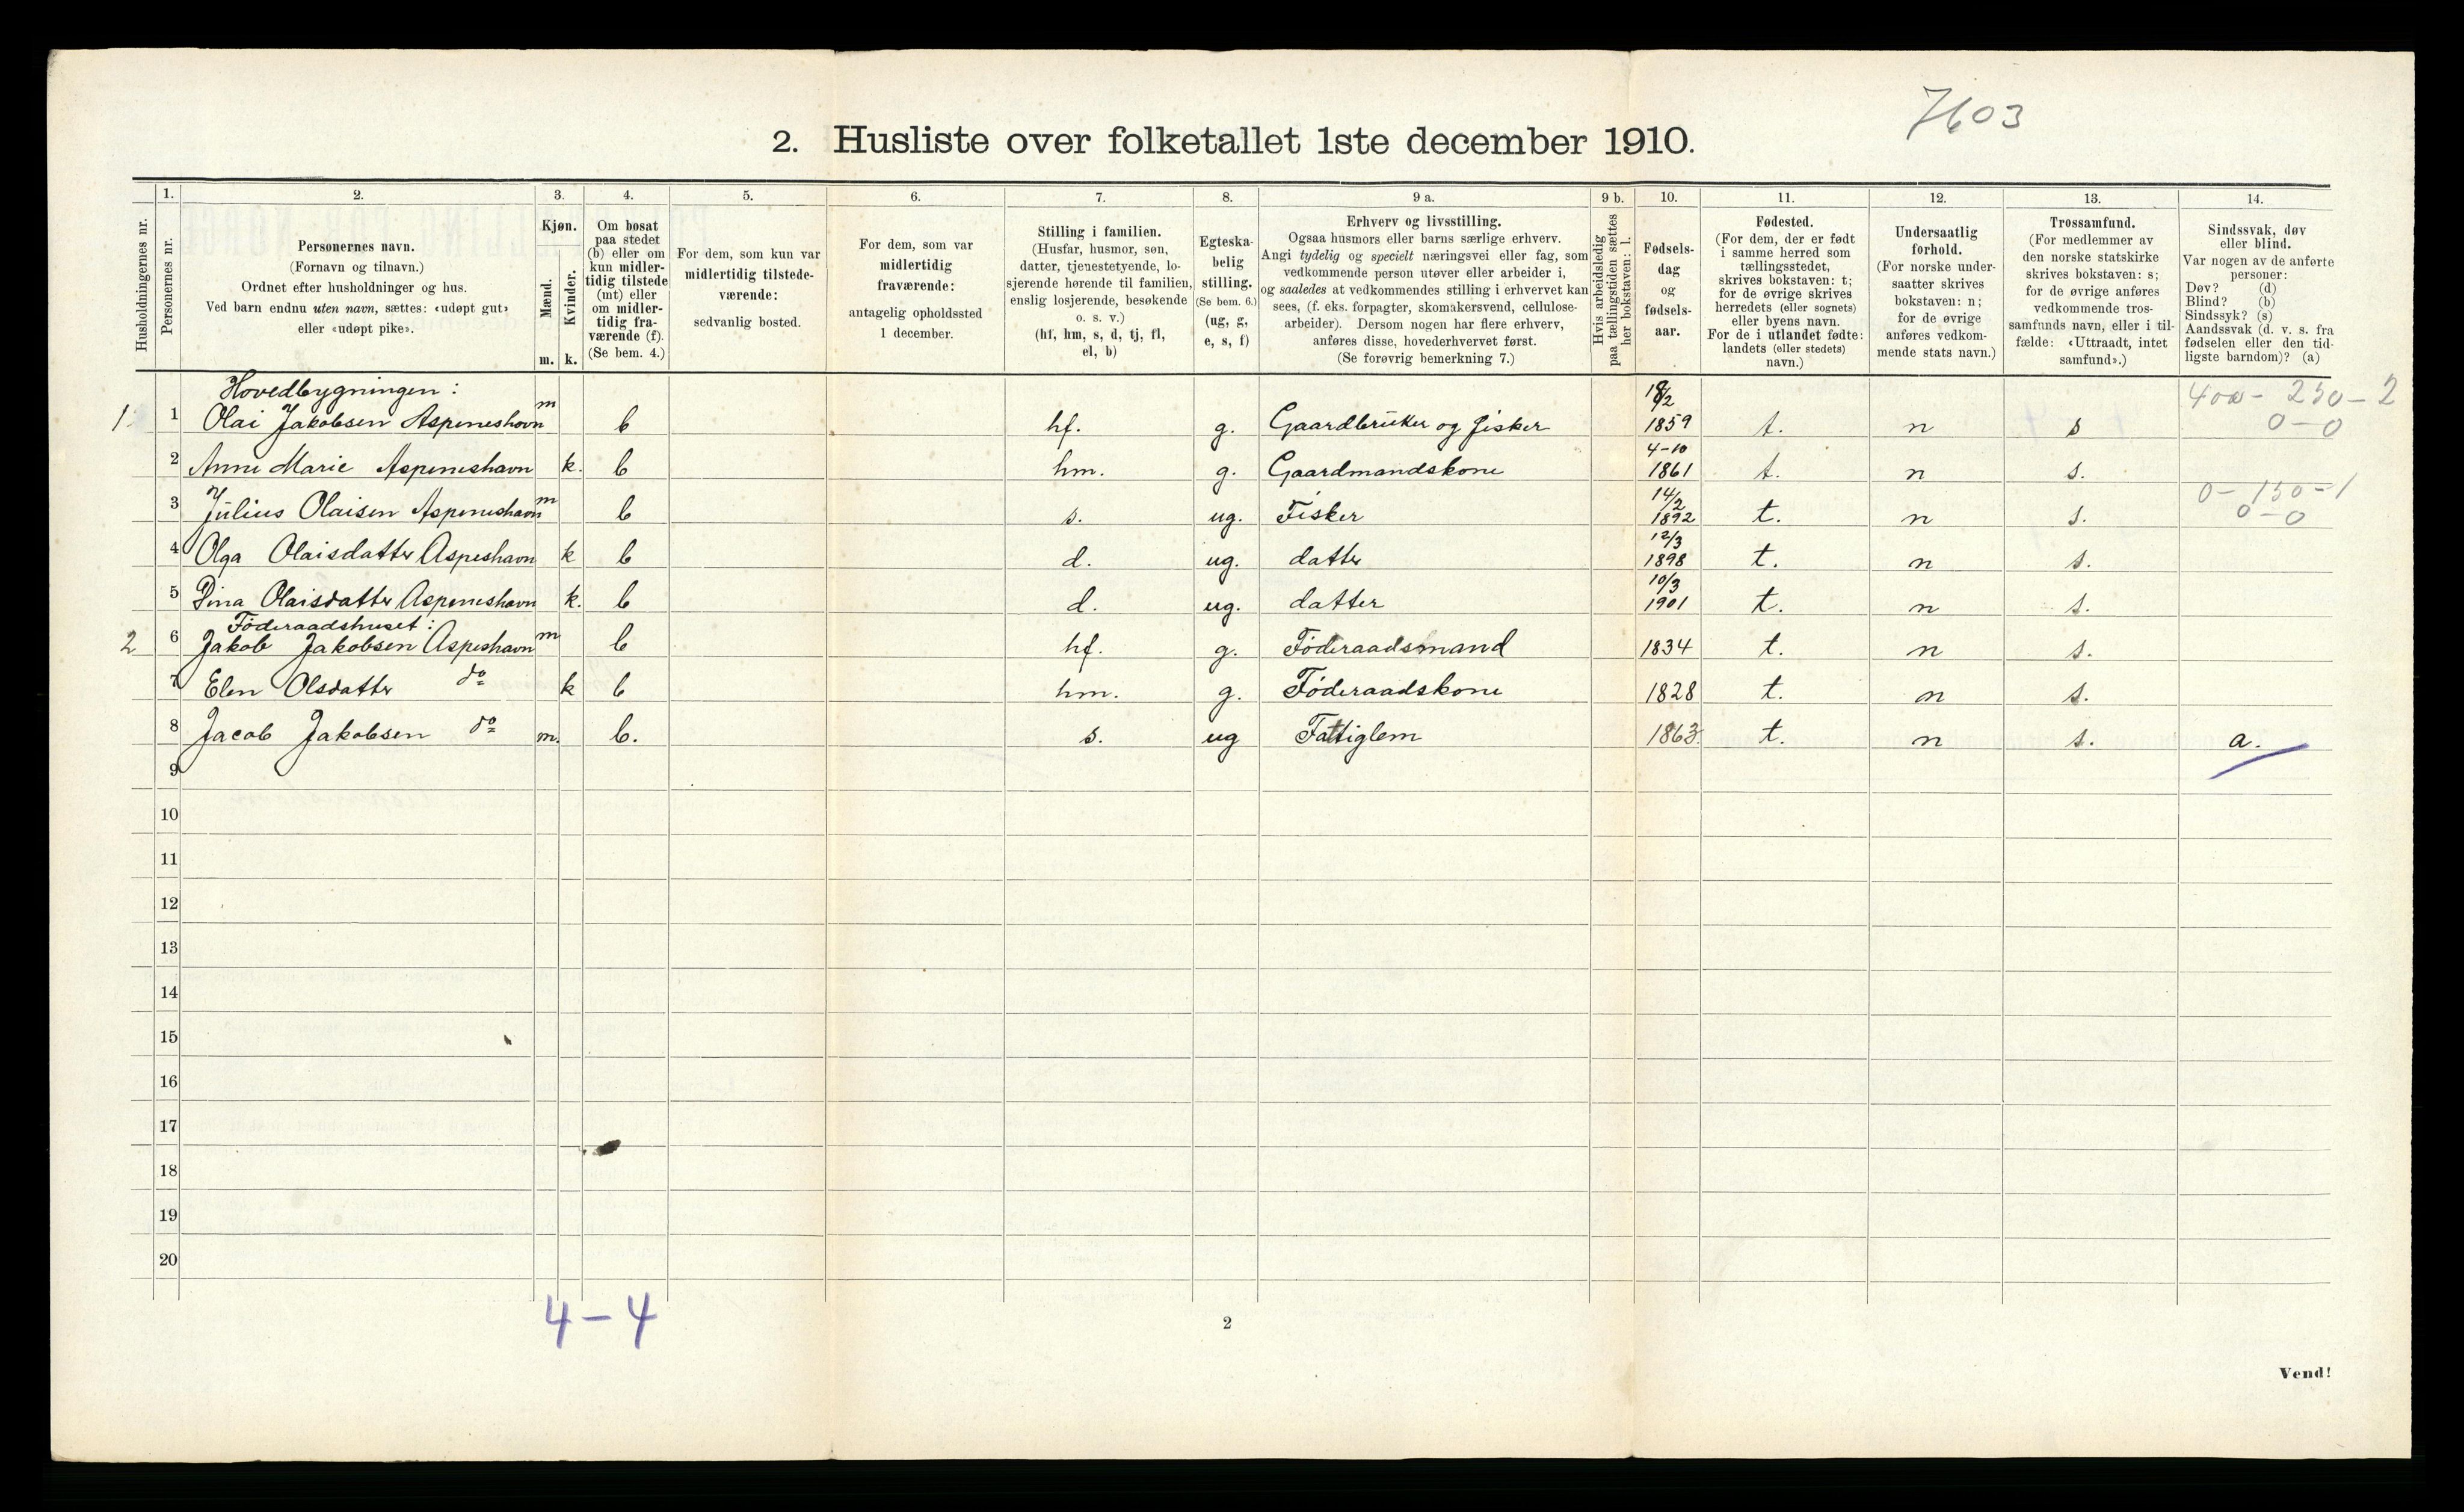 7603
2. Husliste over folketallet 1ste december 1910.
Husholdningernes nr.
1.
Personernes nr.
2.
Personernes navn.
(Fornavn og tilnavn.)
Ordnet efter husholdninger og hus.
Ved barn endnu uten navn, sættes: «udøpt gut»
eller «udøpt pike».
3.
Kjøn.
Mænd.
Kvinder.
m. k.
4.
Om bosat
paa stedet
(b) eller om
kun midler-
tidig tilstede
(mt) eller
om midler-
tidig fra-
værende (f).
(Se bem. 4.)
5.
For dem, som kun var
midlertidig tilstede-
værende:
sedvanlig bosted.
6.
For dem, som var
midlertidig
fraværende:
antagelig opholdssted
1 december.
7.
Stilling i familien.
(Husfar, husmor, søn,
datter, tjenestetyende, lo-
sjerende hørende til familien,
enslig losjerende, besøkende
o. s. v.)
(hf, hm, s, d, tj, fl,
el, b)
8.
Egteska-
belig
stilling.
(Se bem. 6.)
(ug, g,
e, s, f)
9 a.
Erhverv og livsstilling.
Ogsaa husmors eller barns særlige erhverv.
Angi tydelig og specielt næringsvei eller fag, som
vedkommende person utøver eller arbeider i,
og saaledes at vedkommendes stilling i erhvervet kan
sees, (f. eks. forpagter, skomakersvend, cellulose-
arbeider). Dersom nogen har flere erhverv,
anføres disse, hovederhvervet først.
(Se forøvrig bemerkning 7.)
9 b.
Hvis arbeidsledig
paa tællingstiden sættes
her bokstaven: l.
10.
Fødsels-
dag
og
fødsels-
aar.
11.
Fødested.
(For dem, der er født
i samme herred som
tællingsstedet,
skrives bokstaven: t;
for de øvrige skrives
herredets (eller sognets)
eller byens navn.
For de i utlandet fødte:
landets (eller stedets)
navn.)
12.
Undersaatlig
forhold.
(For norske under-
saatter skrives
bokstaven: n;
for de øvrige
anføres vedkom-
mende stats navn.)
13.
Trossamfund.
(For medlemmer av
den norske statskirke
skrives bokstaven: s;
for de øvrige anføres
vedkommende tros-
samfunds navn, eller i til-
fælde: «Uttraadt, intet
samfund».)
14.
Sindssvak, døv
eller blind.
Var nogen av de anførte
personer:
Døv? (d)
Blind? (b)
Sindssyk? (s)
Aandssvak (d. v. s. fra
fødselen eller den tid-
ligste barndom)? (a)
Hovedbygningen:
1 1 Olai Jakobsen Aspeneshovn m b hf. g. Gaardbruker og fisker 18/2 1859 t. n s 400 - 250 - 2
0 - 0
2 Anne Marie Aspeneshavn k. b hm. g. Gaardmandskone 4-10 1861 t. n s.
3 Julius Olaisen Aspeneshavn m b s. ug. Fisker 14/2 1892 t. n s. 0 - 150 - 1
0 - 0
4 Olga Olaisdatter Aspeshavn k b d. ug. datter 12/3 1898 t. n s.
5 Dina Olaisdatter Aspeneshavn k. b d. ug. datter 10/3 1901 t. n s.
Föderaadshuset:
2 6 Jakob Jakobsen Aspeshavn m b hf. g. Föderaadsmand 1834 t. n s.
7 Elen Olsdatter do k b hm. g. Föderaadskone 1828 t. n s.
8 Jacob Jakobsen do m. b. s. ug Fattiglem 1863. t. n s. a.
9
10
11
12
13
14
15
16
17
18
19
20
4 - 4
2
Vend!